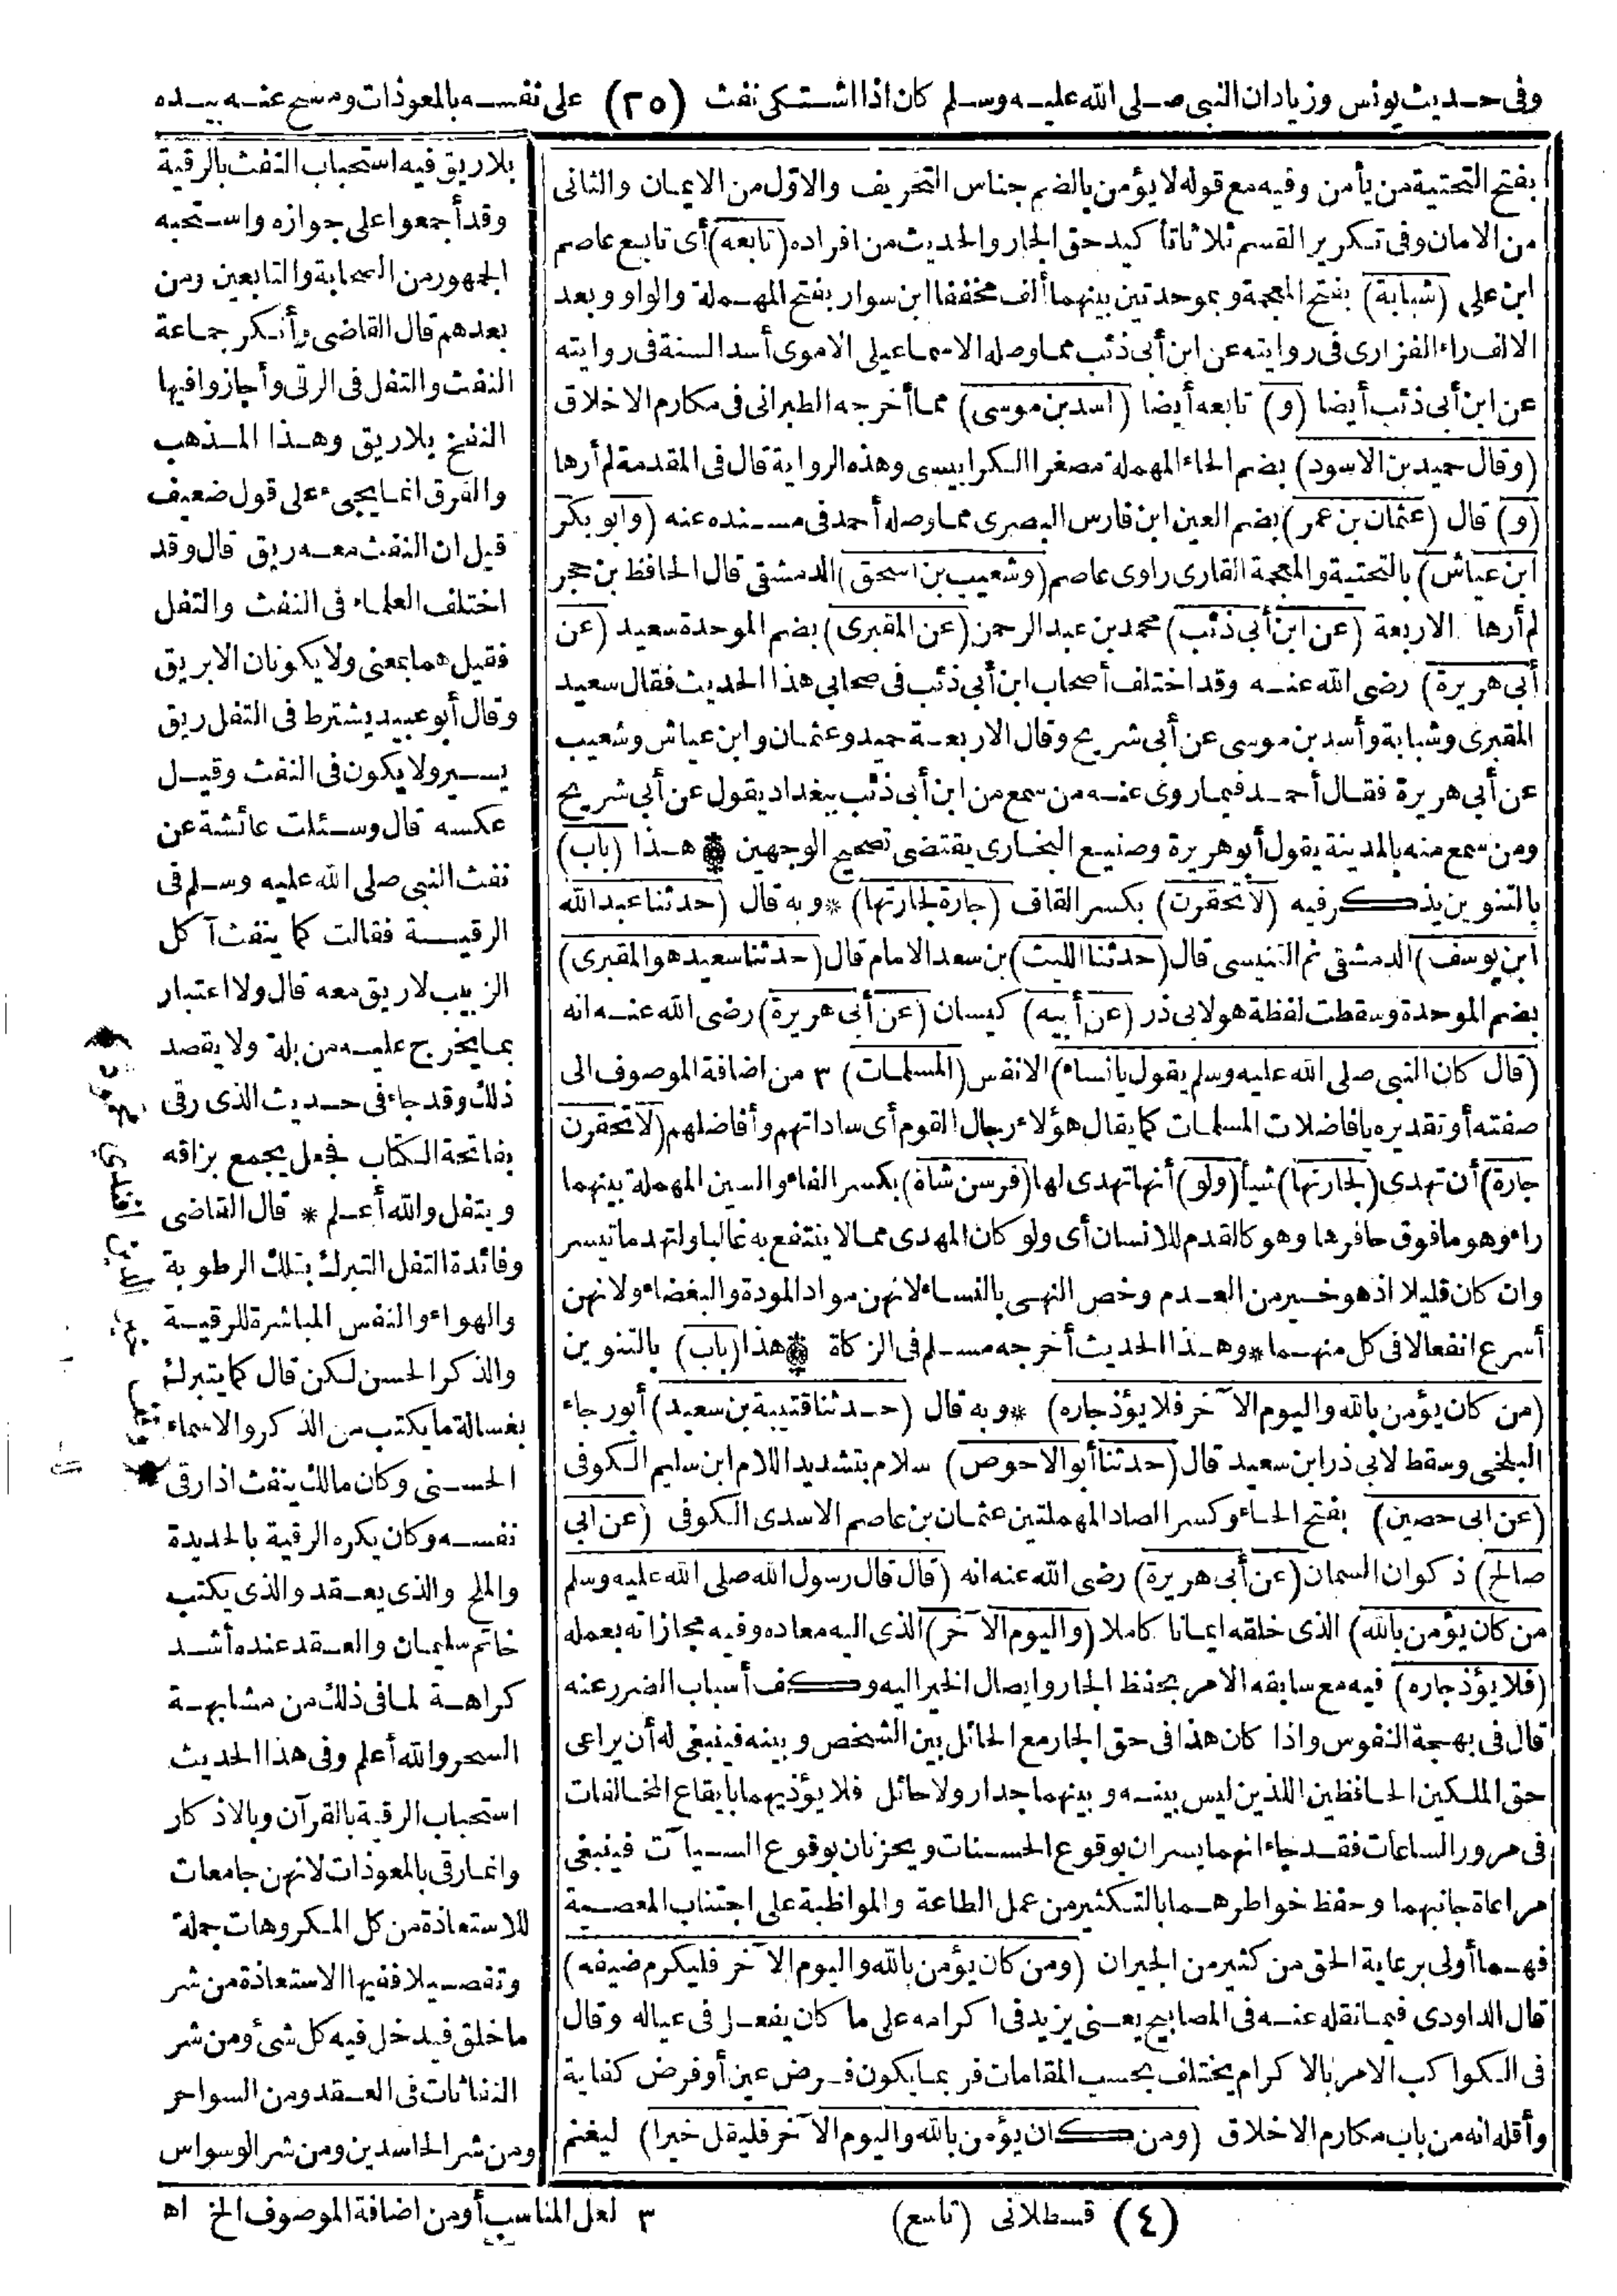 وفى حديث يونس وزياد ان النبي صلى الله عليه وسلم كان اذا اشتكى نفث (٢٥) على نفسه بالمعوذات ومسح عنه بيده
بفتح التحتية من يأمن وفيه مع قوله لا يؤمن بالضم جناس التحريف والاوّل من الايمان والثانى
من الامان وفى تكرير القسم ثلاثا تأكيد حق الجار والحديث من افراده (تابعه) أى تابع عاصم
ابن على (شبابة) بفتح المعجمة وبموحدتين بينهما ألف مخففا ابن سوار بفتح المهملة والواو وبعد
الالف راء الفزارى فى روايته عن ابن أبى ذئب مما وصله الاسماعيلى الاموى أسد السنة فى روايته
عن ابن أبى ذئب أيضا (و) تابعه أيضا (اسد بن موسى) مما أخرجه الطبرانى فى مكارم الاخلاق
(وقال حميد بن الاسود) بضم الحاء المهملة مصغرا الكرابيسى وهذه الرواية قال فى المقدمة لم أرها
(و) قال (عثمان بن عمر) بضم العين ابن فارس البصرى مما وصله أحمد فى مسنده عنه (وابو بكر
ابن عياش) بالتحتية والمعجمة القارى راوى عاصم (وشعيب بن اسحق) الدمشقى قال الحافظ بن حجر
لم أرها الاربعة (عن ابن أبى ذئب) محمد بن عبد الرحمن (عن المقبرى) بضم الموحدة سعيد (عن
أبى هريرة) رضى الله عنه وقد اختلف أصحاب ابن أبى ذئب فى صحابى هذا الحديث فقال سعيد
المقبرى وشبابة وأسد بن موسى عن أبى شريح وقال الاربعة حميد وعثمان وابن عياش وشعيب
عن أبى هريرة فقال أحمد فيما روى عنه من سمع من ابن أبى ذئب ببغداد يقول عن أبى شريح
ومن سمع منه بالمدينة يقول أبو هريرة وصنيع البخارى يقتضى تصحيح الوجهين * هذا (باب)
بالتنوين يذكر فيه (لا تحقرن) بكسر القاف (جارة لجارتها) * وبه قال (حدثنا عبد الله
ابن يوسف) الدمشقى ثم التنيسى قال (حدثنا الليث) بن سعد الامام قال (حدثنا سعيد هو المقبرى)
بضم الموحدة وسقطت لفظة هو لابى ذر (عن أبيه) كيسان (عن أبى هريرة) رضى الله عنه انه
(قال كان النبى صلى الله عليه وسلم يقول يا نساء) الانفس (المسلمات) ٣ من اضافة الموصوف الى
صفته أو تقديره يا فاضلات المسلمات كما يقال هؤلاء رجال القوم أى ساداتهم وأفاضلهم (لا تحقرن
جارة) أن تهدى (لجارتها) شيأ (ولو) أنها تهدى لها (فرسن شاة) بكسر الفاء والسين المهملة بينهما
راء وهو ما فوق حافرها وهو كالقدم للانسان أى ولو كان المهدى مما لا ينتفع به غالبا ولتهد ما تيسر
وان كان قليلا اذ هو خير من العدم وخص النهى بالنساء لانهن مواد المودة والبغضاء ولانهن
أسرع انفعالا فى كل منهما * وهذا الحديث أخرجه مسلم فى الزكاة * هذا (باب) بالتنوين
(من كان يؤمن بالله واليوم الآخر فلا يؤذ جاره) * وبه قال (حدثنا قتيبة بن سعيد) أبو رجاء
البلخى وسقط لابى ذر ابن سعيد قال (حدثنا أبو الاحوص) سلام بتشديد اللام ابن سليم الكوفى
(عن ابى حصين) بفتح الحاء وكسر الصاد المهملتين عثمان بن عاصم الاسدى الكوفى (عن ابى
صالح) ذكوان السمان (عن أبى هريرة) رضى الله عنه انه (قال قال رسول الله صلى الله عليه وسلم
من كان يؤمن بالله) الذى خلقه ايمانا كاملا (واليوم الآخر) الذى اليه معاده وفيه مجازاته بعمله
(فلا يؤذ جاره) فيه مع سابقه الامر بحفظ الجار وايصال الخير اليه وكف أسباب الضرر عنه
قال فى بهجة النفوس واذا كان هذا فى حق الجار مع الحائل بين الشخص وبينه فينبغى له أن يراعى
حق الملكين الحافظين اللذين ليس بينه وبينهما جدار ولا حائل فلا يؤذيهما بايقاع المخالفات
فى مرور الساعات فقد جاء انهما يسران بوقوع الحسنات ويحزنان بوقوع السيآت فينبغى
مراعاة جانبهما وحفظ خواطرهما بالتكثير من عمل الطاعة والمواظبة على اجتناب المعصية
فهما أولى برعاية الحق من كثير من الجيران (ومن كان يؤمن بالله واليوم الآخر فليكرم ضيفه)
قال الداودى فيما نقله عنه فى المصابيح يعنى يزيد فى اكرامه على ما كان يفعل فى عياله وقال
فى الكواكب الامر بالاكرام يختلف بحسب المقامات فربما يكون فرض عين أو فرض كفاية
وأقله انه من باب مكارم الاخلاق (ومن كان يؤمن بالله واليوم الآخر فليقل خيرا) ليغنم
بلا ريق فيه استحباب النفث بالرقية
وقد أجمعوا على جوازه واستحبه
الجمهور من الصحابة والتابعين ومن
بعدهم قال القاضى وأنكر جماعة
النفث والتفل فى الرقى وأجازوا فيها
النفخ بلا ريق وهذا المذهب
والفرق انما يجىء على قول ضعيف
قيل ان النفث معه ريق قال وقد
اختلف العلماء فى النفث والتفل
فقيل هما بمعنى ولا يكونان الا بريق
وقال أبو عبيد يشترط فى التفل ريق
يسير ولا يكون فى النفث وقيل
عكسه قال وسئلت عائشة عن
نفث النبى صلى الله عليه وسلم فى
الرقية فقالت كما ينفث آكل
الزبيب لا ريق معه قال ولا اعتبار
بما يخرج عليه من بلة ولا يقصد
ذلك وقد جاء فى حديث الذى رقى
بفاتحة الكتاب فجعل يجمع بزاقه
ويتفل والله أعلم * قال القاضى
وفائدة التفل التبرك بتلك الرطوبة
والهواء والنفس المباشرة للرقية
والذكر الحسن لكن قال كما يتبرك
بغسالة ما يكتب من الذكر والاسماء
الحسنى وكان مالك ينفث اذا رقى
نفسه وكان يكره الرقية بالحديدة
والملح والذى يعقد والذى يكتب
خاتم سليمان والعقد عنده أشد
كراهة لما فى ذلك من مشابهة
السحر والله أعلم وفى هذا الحديث
استحباب الرقية بالقرآن وبالاذكار
وانما رقى بالمعوذات لانهن جامعات
للاستعاذة من كل المكروهات جملة
وتفصيلا ففيها الاستعاذة من شر
ما خلق فيدخل فيه كل شئ ومن شر
النفاثات فى العقد ومن السواحر
ومن شر الحاسدين ومن شر الوسواس
٣ لعل المناسب أو من اضافة الموصوف الخ اه
(٤) قسطلانى (تاسع)